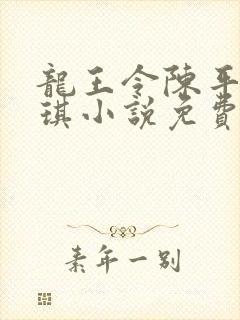 龍王令陳平
琪小說免費
素年一別